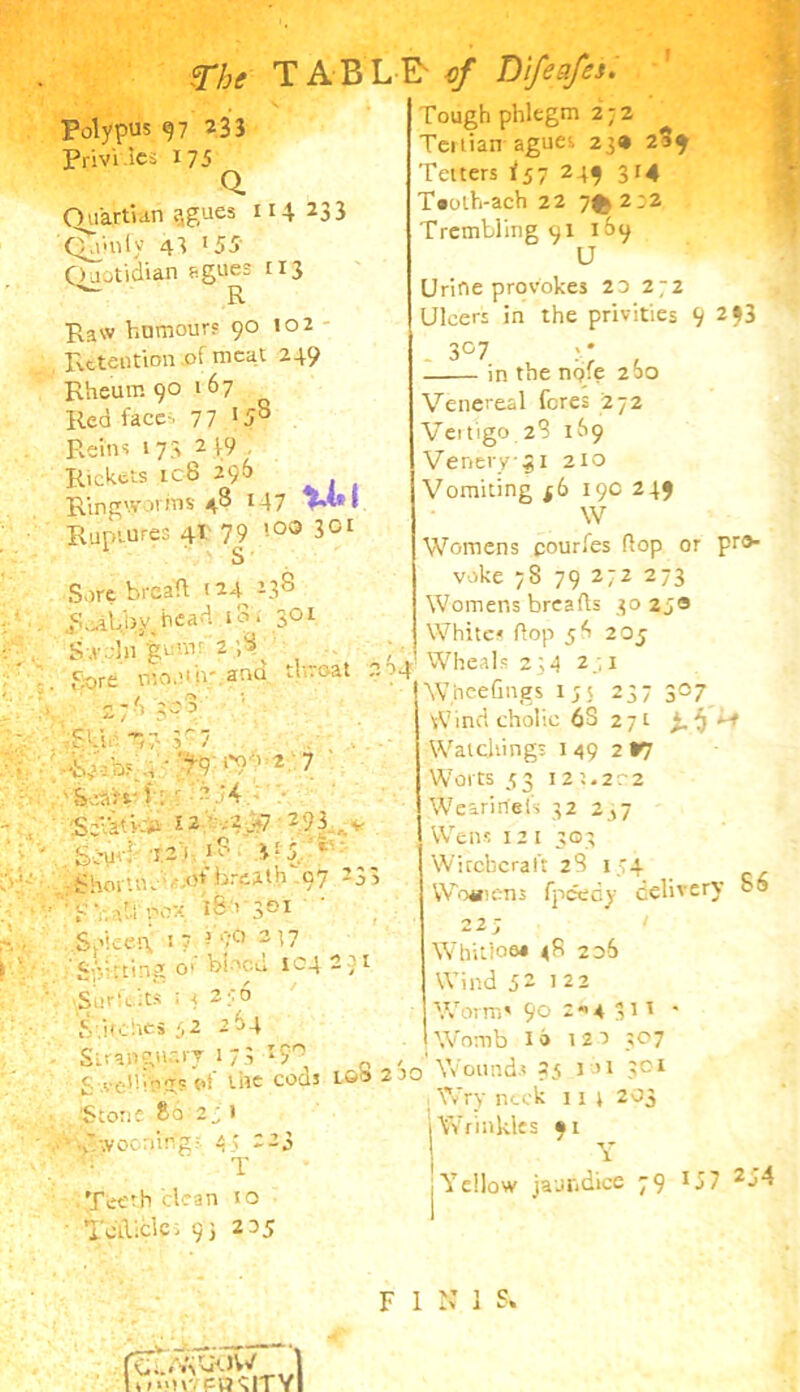 The TABLE of Difeafes.
Polypus 97 233
Privi.ies 175
Q
Quartian agues 114 233
Quinfy 43 155
Quotidian agues 113
R
Raw humours 90 102
Retention of meat 249
Rheum 90 167
Red faces 77 158
Reins 173 249
Rickets 108 296
Ringworms 48 147
Ruptures 41 79 100 301
S
Sore breaft 124 238
Scabby head 181 301
Swoln gums 238
Sore mouth and throat 264
276 303
Scars
Sciatica 12 237 293
Scurf 121
Shortn. of breath 97 233
Small pox 180 301
Spleen 17 190 217
Spitting of blood 104 231
Surfeits 256
Stitches 52 264
Stranguary 173 190
Swellings of the cods 108 230
Stone 86 231
Swoonings 45 223
T
Teeth clean 10
Tefticles 93 205
Tough phlegm 272
Tertian agues 239
Tetters 157 249 314
Tooth-ach 22 202
Trembling 91 169
U
Urine provokes 20 272
Ulcers in the privities 9 293
307
—— in the nofe 260
Venereal fores 272
Vertigo 28 169
Venery 31 210
Vomiting 56 190 249
W
Womens courfes ftop or pro-
voke 78 79 272 273
Womens breafts 30 250
Whites ftop 56 205
Wheals 234 231
Wheefings 155 237 307
Wind cholic 68 271
Watchings 149
Worts 53 123.202
Wearinefs 32 237
Wens 121 303
Witchcraft 28 154
Womens fpeedy delivery 86
225
Whitloes 48 206
Wind 52 122
Worms 90 311
Womb 16 120 307
Wounds 35 101 301
Wry neck 114 203
Wrinkles 91
Y
Yellow jaundice 79 157 254
FINIS.